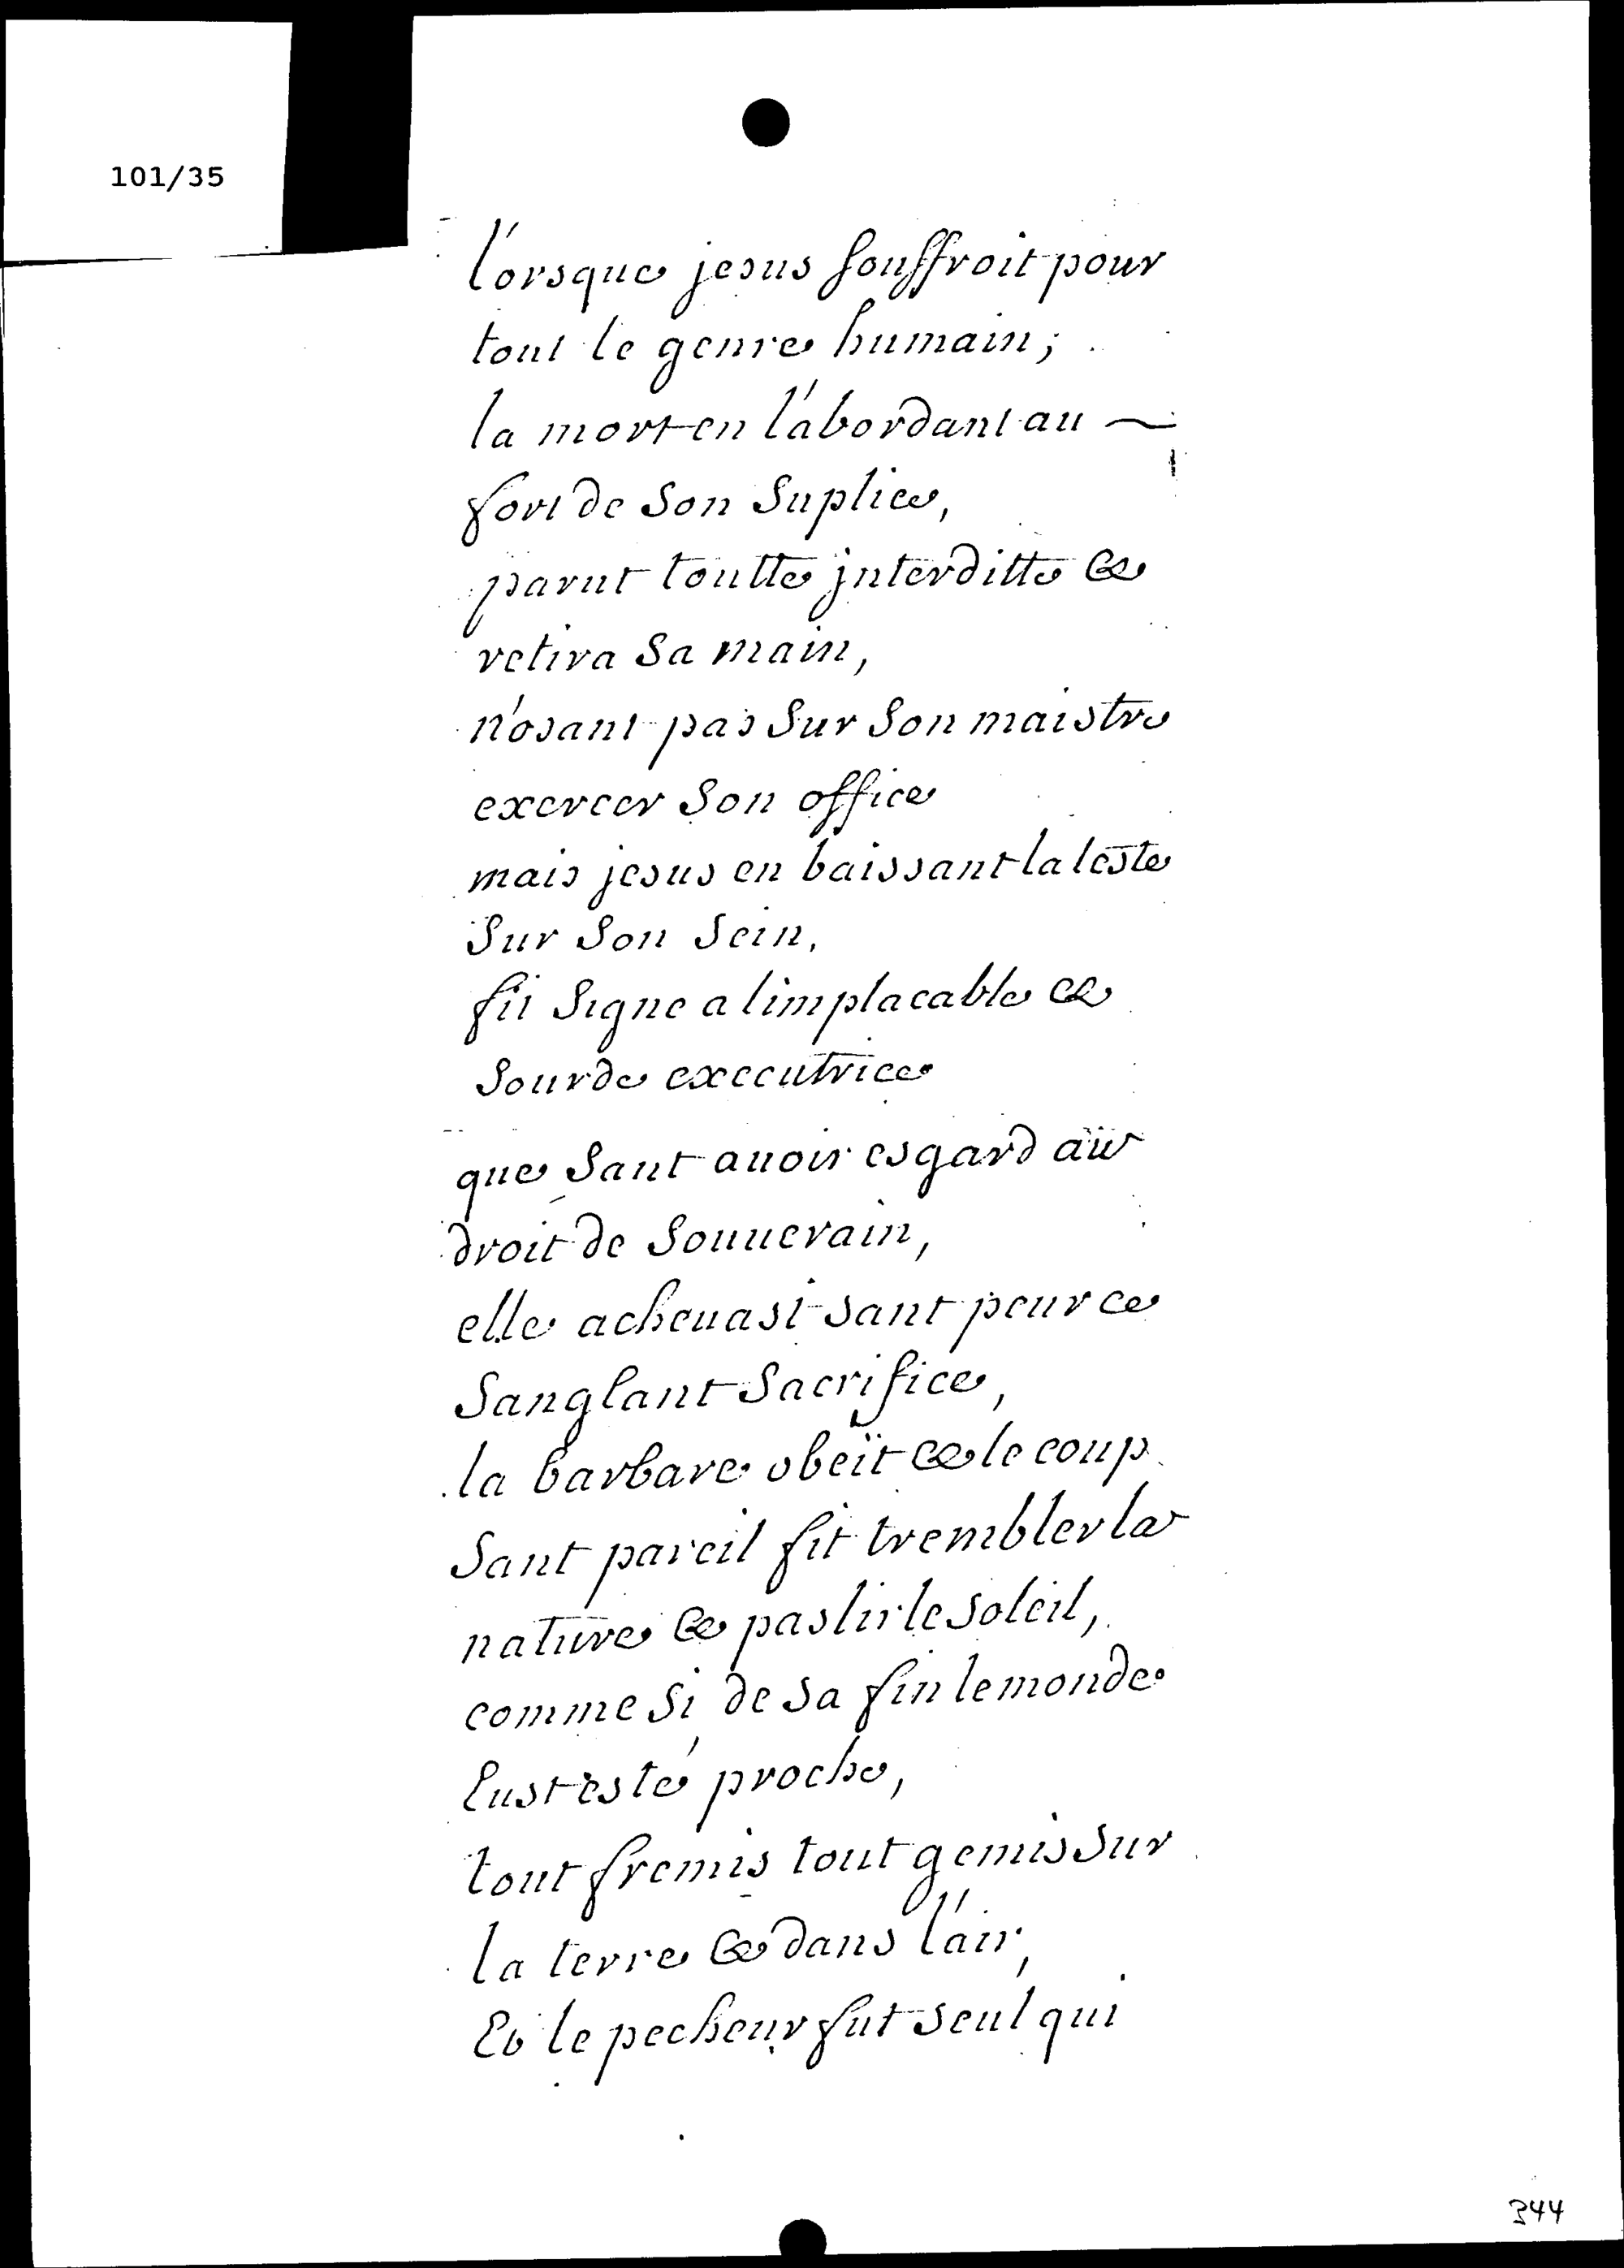 101/35
l'orsque jesus souffroit pour
tout le genre humain;
la mort en l'abordant au ~
fort de son suplice,
parut toutte jnterditte &
retira sa main,
n'osant pas sur son maistre
exercer son office
mais jesus en baissant la teste
sur son sein.
fit signe a limplacable &
sourde executrice
que sant auoir esgard au
droit de souuerain,
elle acheuast sant peur ce
sanglant sacrifice,
la barbare obeït & le coup
sant pareil fit trembler la
nature & paslir le soleil,
comme si de sa fin le monde
eust esté proche,
tout fremis tout gemis sur
la terre & dans l'air,
Et le pecheur fut seul qui
344